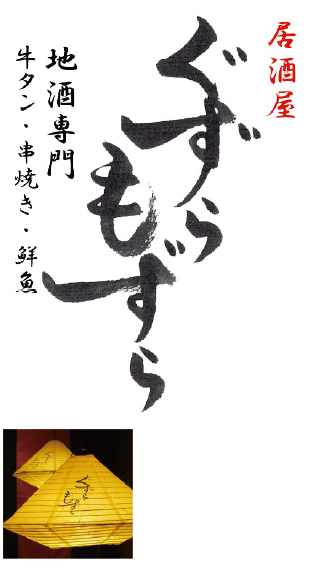 居酒屋
ぐずら
もずら
地酒専門
牛タン・串焼き・鮮魚
ぐずら
もずら